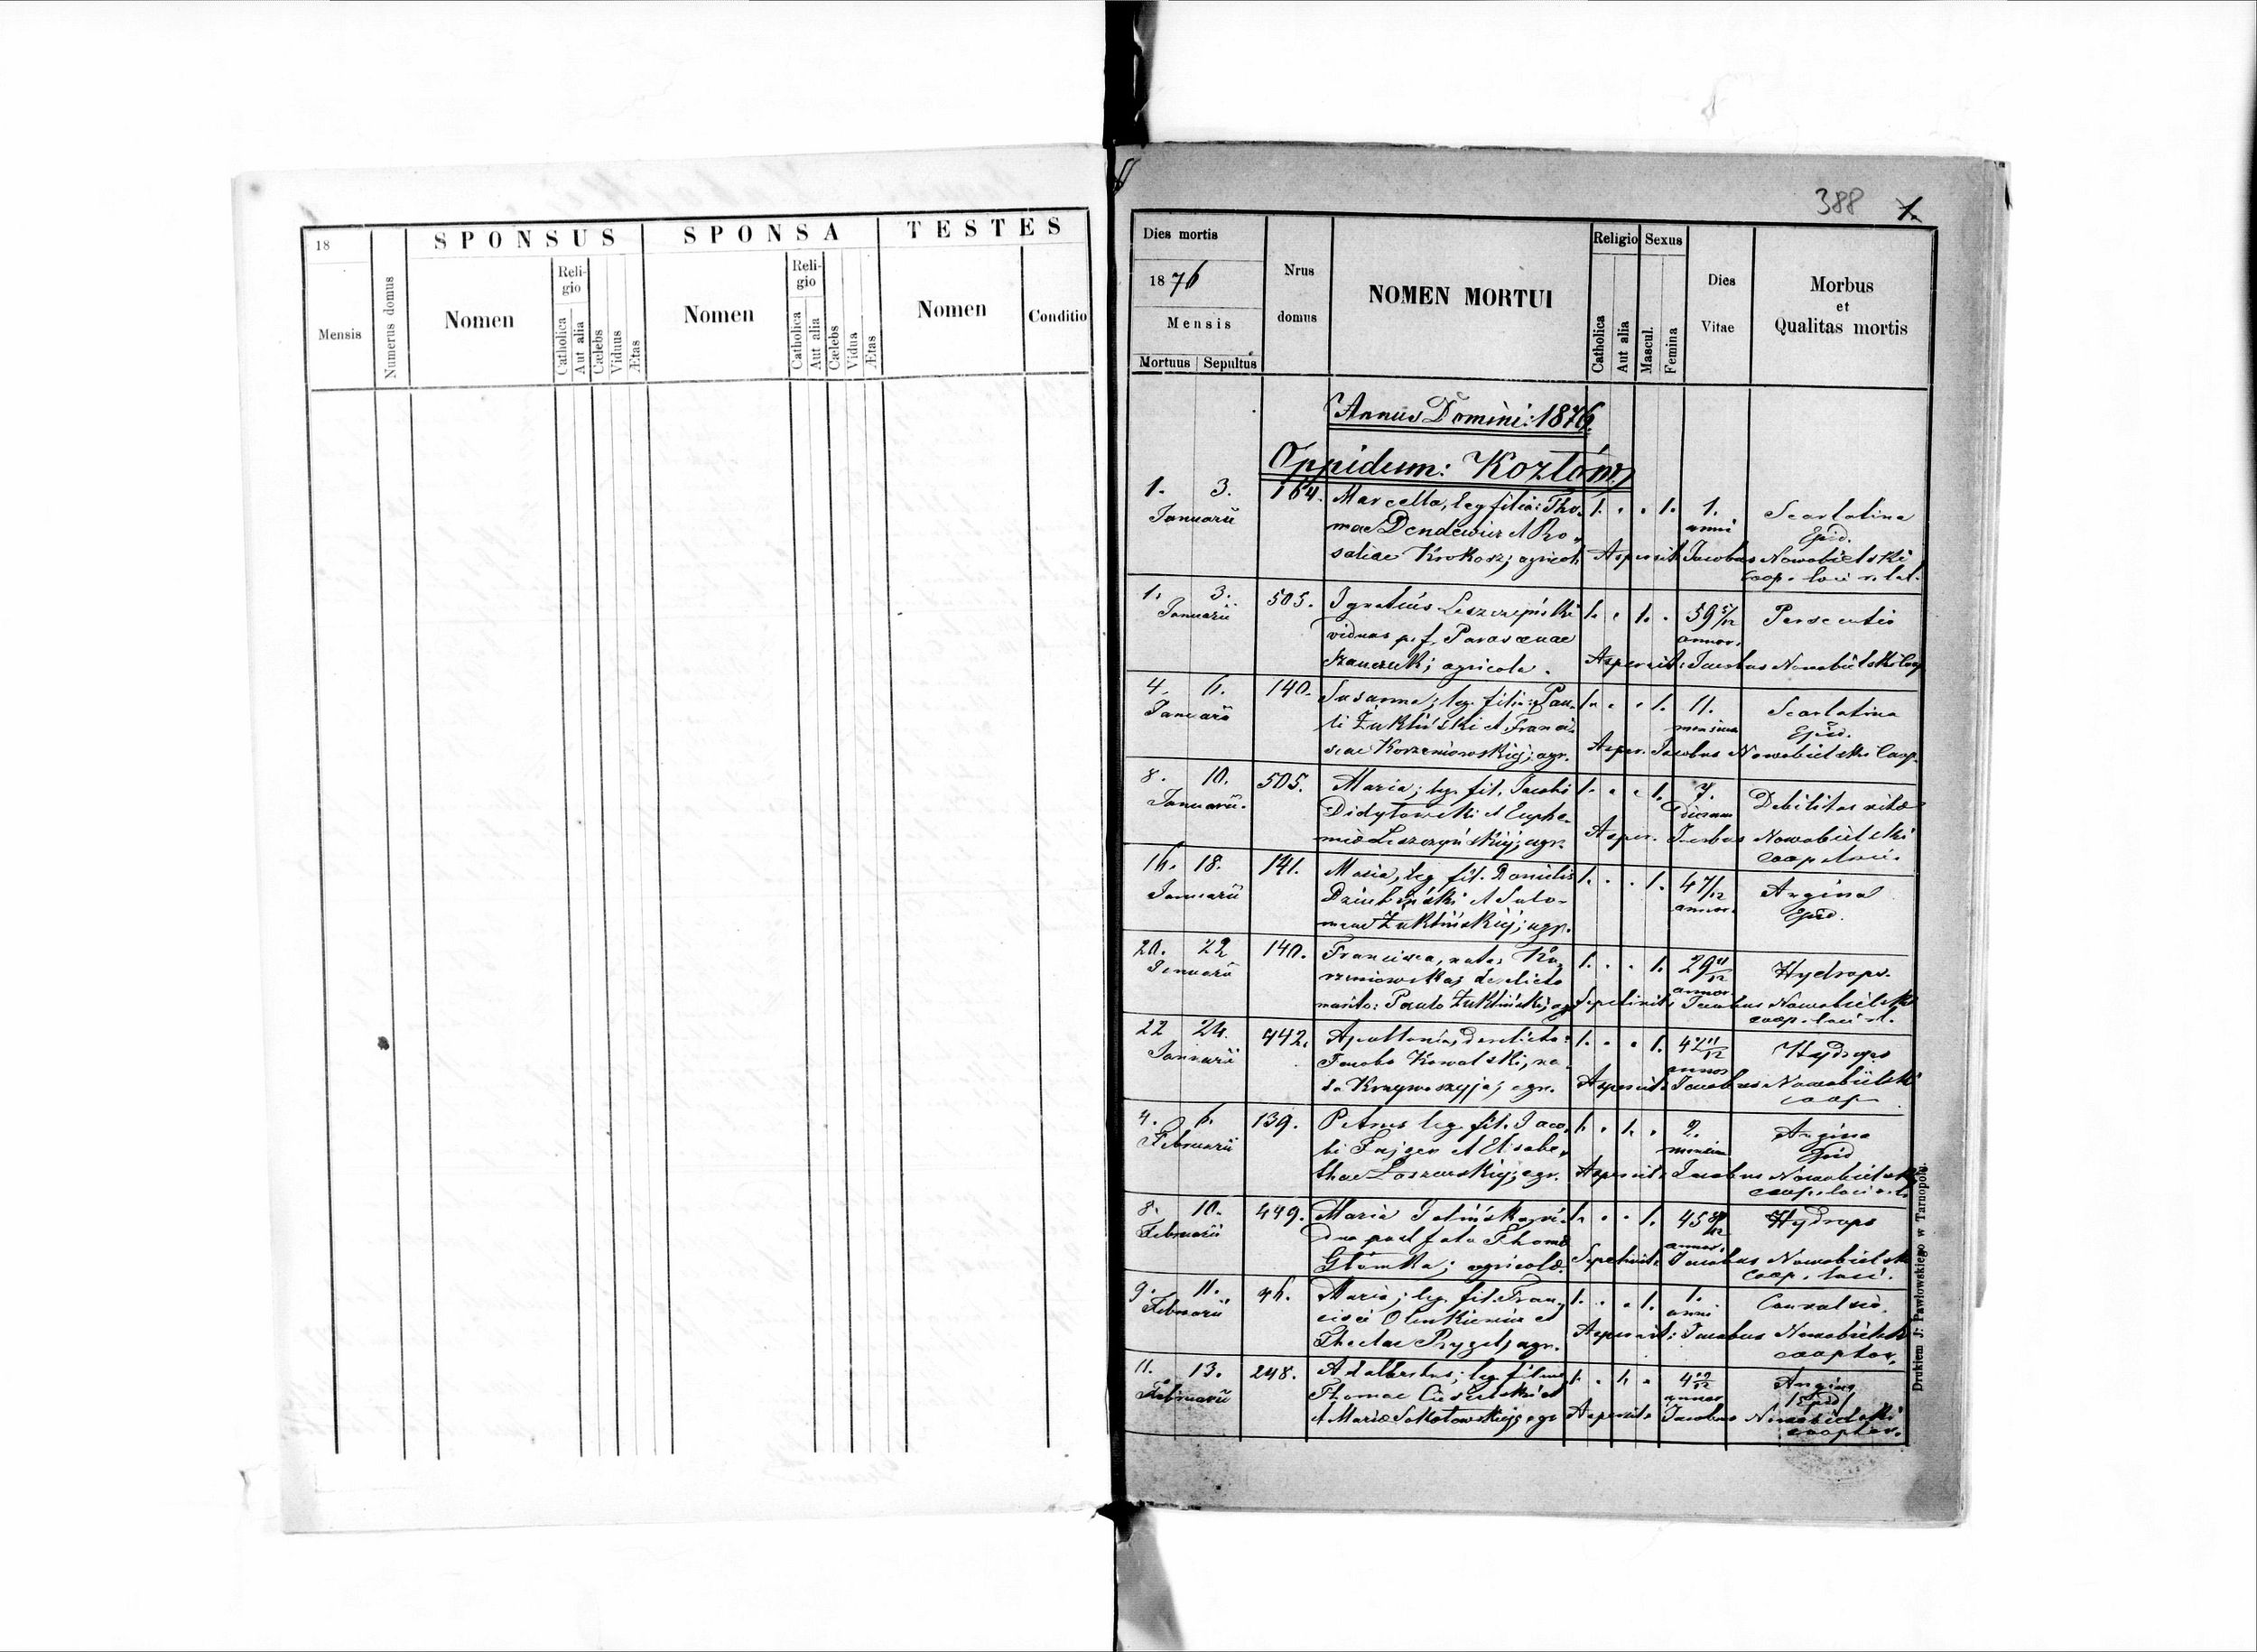 18
SPONSUS
SPONSA
TESTES
Mensis
Numerus domus
Nomen
Reli-
gio
Catholica
Aut alia
Cælebs
Viduus
Ætas
Nomen
Reli-
gio
Catholica
Aut alia
Cælebs
Vidua
Ætas
Nomen
Conditio
388
1.
Dies mortis
1876
Mensis
Mortuus Sepultus
Nrus
domus
NOMEN MORTUI
Religio
Catholica
Aut alia
Sexus
Mascul.
Femina
Dies
Vitae
Morbus
et
Qualitas mortis
Annus Domini: 1876.
Oppidum: Kozłów
1. 3. 164. Marcella, leg filia: Tho- 1. . . 1. 1. Scarlatina
Januarii anni Epid.
mae Dendewicz et Ro-
saliae Krokosz; agricol. Aspersit Jacobus Nowobielski
coop. loci r. lat.
1. 3. 505. Ignatius Leszczyński 1. . 1. . 59 5/12 Persecutio
Januarii viduus p. f. Parascevae annor.
agricola. Aspersit: Jacobus Nowobielski Coop
4. 6. 140. Susanna; leg. filia: Pau- 1. . . 1. 11. Scarlatina
Januarii li Żukliński et Franci- mensium Epid.
scae Korzeniowskiej; agr. Asper. Jacobus Nowobielski Coop.
8. 10. 505. Maria; leg. fil. Jacobi 1. . . 1. 7. Debilitas vitæ
Januarii. Didytowski et Euphe- dierum
miæ Leszczyńskiej; agr. Asper. Jacobus Nowobielski
coop. loci.
16. 18. 141. Maria, leg. fil. Danielis 1. . . 1. 4 7/12 Angina
Januarii et Salo- annor. Epid.
meae Żuklińskiej; agr.
20. 22 140. Francisca, nata Ko- 1. . . 1. 29 11/12 Hydrops.
Januarii rzeniowska; derelicto annor.
marito: Paulo Żukliński; agr Sepelivit: Jacobus Nowobielski
coop. loci r. l.
22 24. 442. Apollonia, derelicto: 1. . . 1. 42 11/12 Hydrops
Januarii Jacobo Kowalski, na- annor
ta Krzywoszyja; agr. Aspersit: Jacobus Nowobielski
coop
4. 6. 139. Petrus leg. fil. Jaco- 1. . 1. . 2. Angina
Februarii bi Fajger et Elisabe- mensium Epid
thae Łoszewskiej; agr. Aspersit: Jacobus Nowobielski
coop. loci r. l.
8. 10. 449. Maria vi- 1. . . 1. 45 Hydrops
Februarii dua post fata Thomæ annor.
agricolæ. Sepelivit: Jacobus Nowobielski
coop. loci.
9. 11. 46. Maria; leg. fil. Fran- 1. . . 1. 1. Convulsio.
Februarii cisci Olenkiewicz et anni
Theclae agr. Aspersit: Jacobus Nowobielski
cooptor.
11. 13. 248. Adalbertus; leg. filius 1. . 1. . 4 Angina
Februarii Thomae Cisielski annor Epid
et Mariæ Sokołowskiej; agr Aspersit: Jacobus Nowobielski
cooptor.
Drukiem J. Pawłowskiego w Tarnopolu.